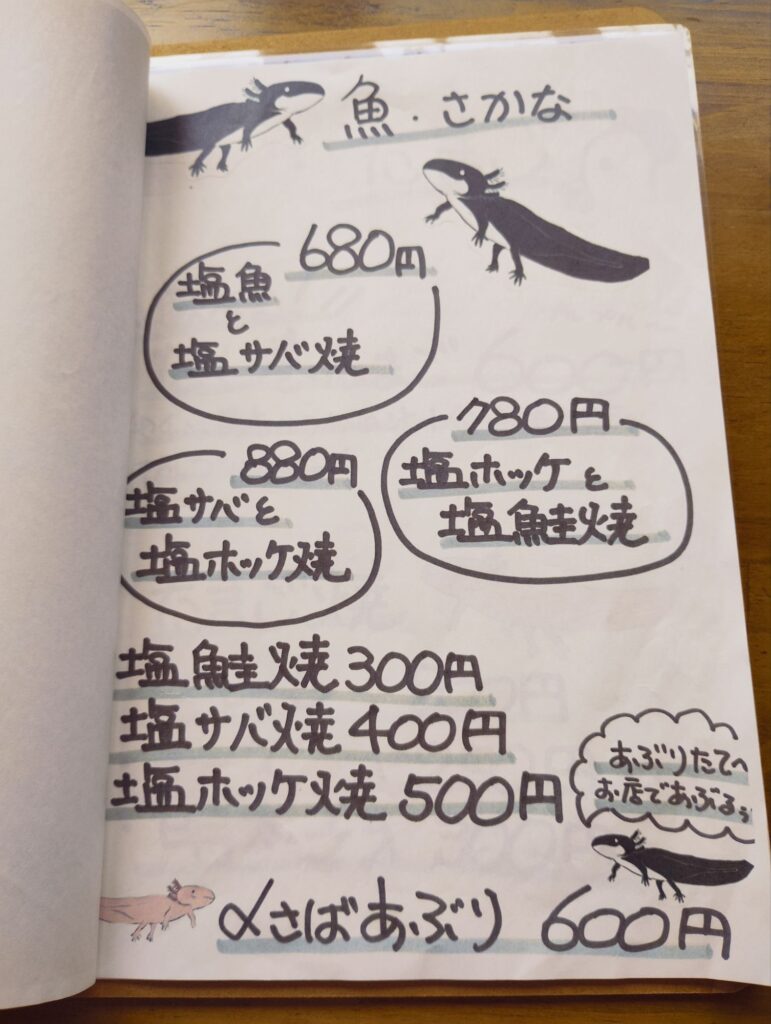 魚・さかな
680円
塩魚
と
塩サバ焼
780円
塩ホッケと
塩鮭焼
880円
塩サバと
塩ホッケ焼
塩鮭焼 300円
塩サバ焼 400円
塩ホッケ焼 500円
あぶりたてへ
お店であぶるぅ
〆さばあぶり 600円